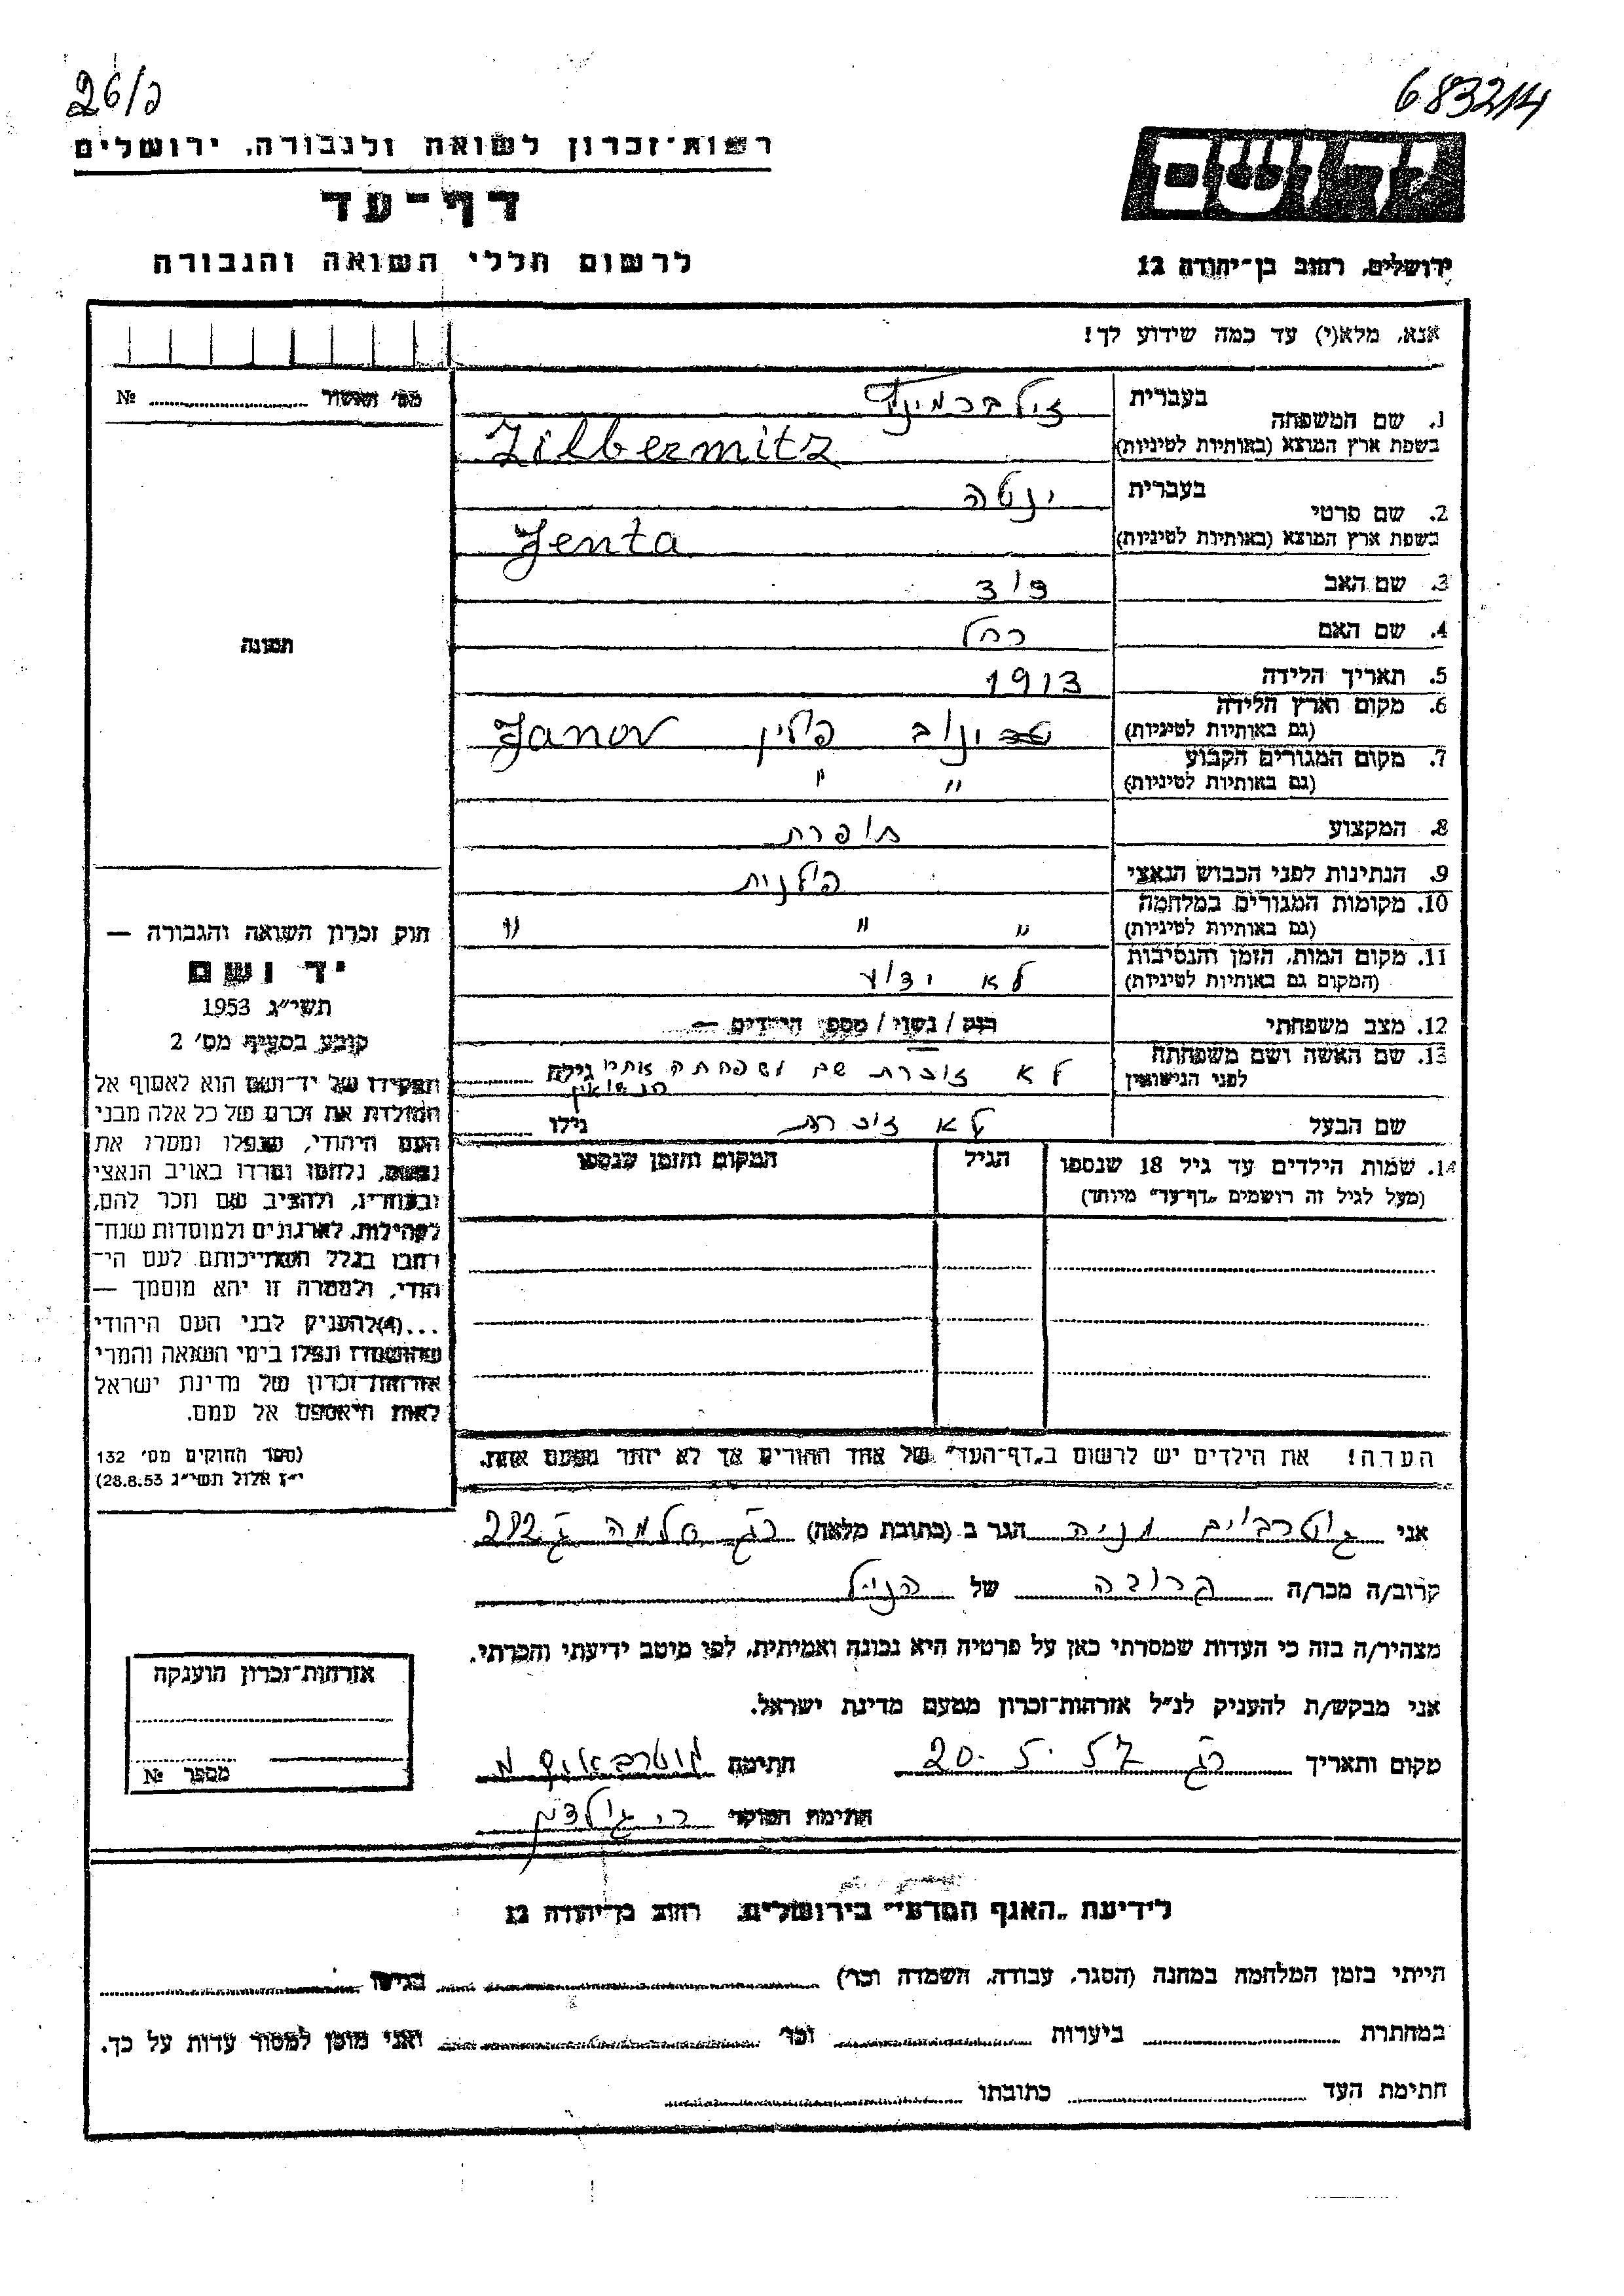 26/כ
683214
רשות־זכרון לשואה ולגבורה, ירושלים
דף־עד
לרשום חללי השואה והגבורה
יד ושם
ירושלים, רחוב בן־יהודה 12
אנא, מלא(י) עד כמה שידוע לך!
מס' האשור № 
1. שם המשפחה בעברית זילברמיץ
בשפת ארץ המוצא (באותיות לטיניות) Zilbermitz
2. שם פרטי בעברית ינטה
בשפת ארץ המוצא (באותיות לטיניות) Jenta
3. שם האב דוד
4. שם האם רחל
תמונה
5. תאריך הלידה 1913
6. מקום וארץ הלידה (גם באותיות לטיניות) ינוב פולין Janov
7. מקום המגורים הקבוע (גם באותיות לטיניות) " "
8. המקצוע תופרת
9. הנתינות לפני הכבוש הנאצי פולנית
10. מקומות המגורים במלחמה (גם באותיות לטיניות) " " "
11. מקום המות, הזמן והנסיבות (המקום גם באותיות לטיניות) לא ידוע
12. מצב משפחתי רווק / נשוי / מספר הילדים —
13. שם האשה ושם משפחתה לפני הנישואין לא זוכרת שם משפחתה אחרי הנשואין גילה
שם הבעל לא זוכרת גילו
14. שמות הילדים עד גיל 18 שנספו (מעל לגיל זה רושמים „דף־עד" מיוחד) הגיל המקום והזמן שנספו
חוק זכרון השואה והגבורה —
יד ושם
תשי"ג 1953
קובע בסעיף מס' 2
תפקידו של יד־ושם הוא לאסוף אל
המולדת את זכרם של כל אלה מבני
העם היהודי, שנפלו ומסרו את
נפשם, נלחמו ומרדו באויב הנאצי
ובעוזריו, ולהציב שם וזכר להם,
לקהילות, לארגונים ולמוסדות שנח־
רבו בגלל השתייכותם לעם הי־
הודי, ולמטרה זו יהא מוסמך —
...(4)להעניק לבני העם היהודי
שהושמדו ונפלו בימי השואה והמרי
אזרחות־זכרון של מדינת ישראל
לאות היאספם אל עמם.
(ספר החוקים מס' 132
י"ז אלול תשי"ג 28.8.53)
הערה! את הילדים יש לרשום ב„דף־העד" של אחד ההורים אך לא יותר מפעם אחת.
אני מניה הגר ב (כתובת מלאה) רג סלמה ג 212
קרוב/ה מכר/ה קרובה של הנ"ל
מצהיר/ה בזה כי העדות שמסרתי כאן על פרטיה היא נכונה ואמיתית, לפי מיטב ידיעתי והכרתי.
אני מבקש/ת להעניק לנ"ל אזרחות־זכרון מטעם מדינת ישראל.
מקום ותאריך רג 20.5.57 חתימה
חתימת הפוקד
אזרחות־זכרון הוענקה
מספר №
לידיעת „האגף המדעי" בירושלים, רחוב בן־יהודה 12
הייתי בזמן המלחמה במחנה (הסגר, עבודה, השמדה וכו') בגיטו
במחתרת ביערות וכו' ואני מוכן למסור עדות על כך.
חתימת העד כתובתו